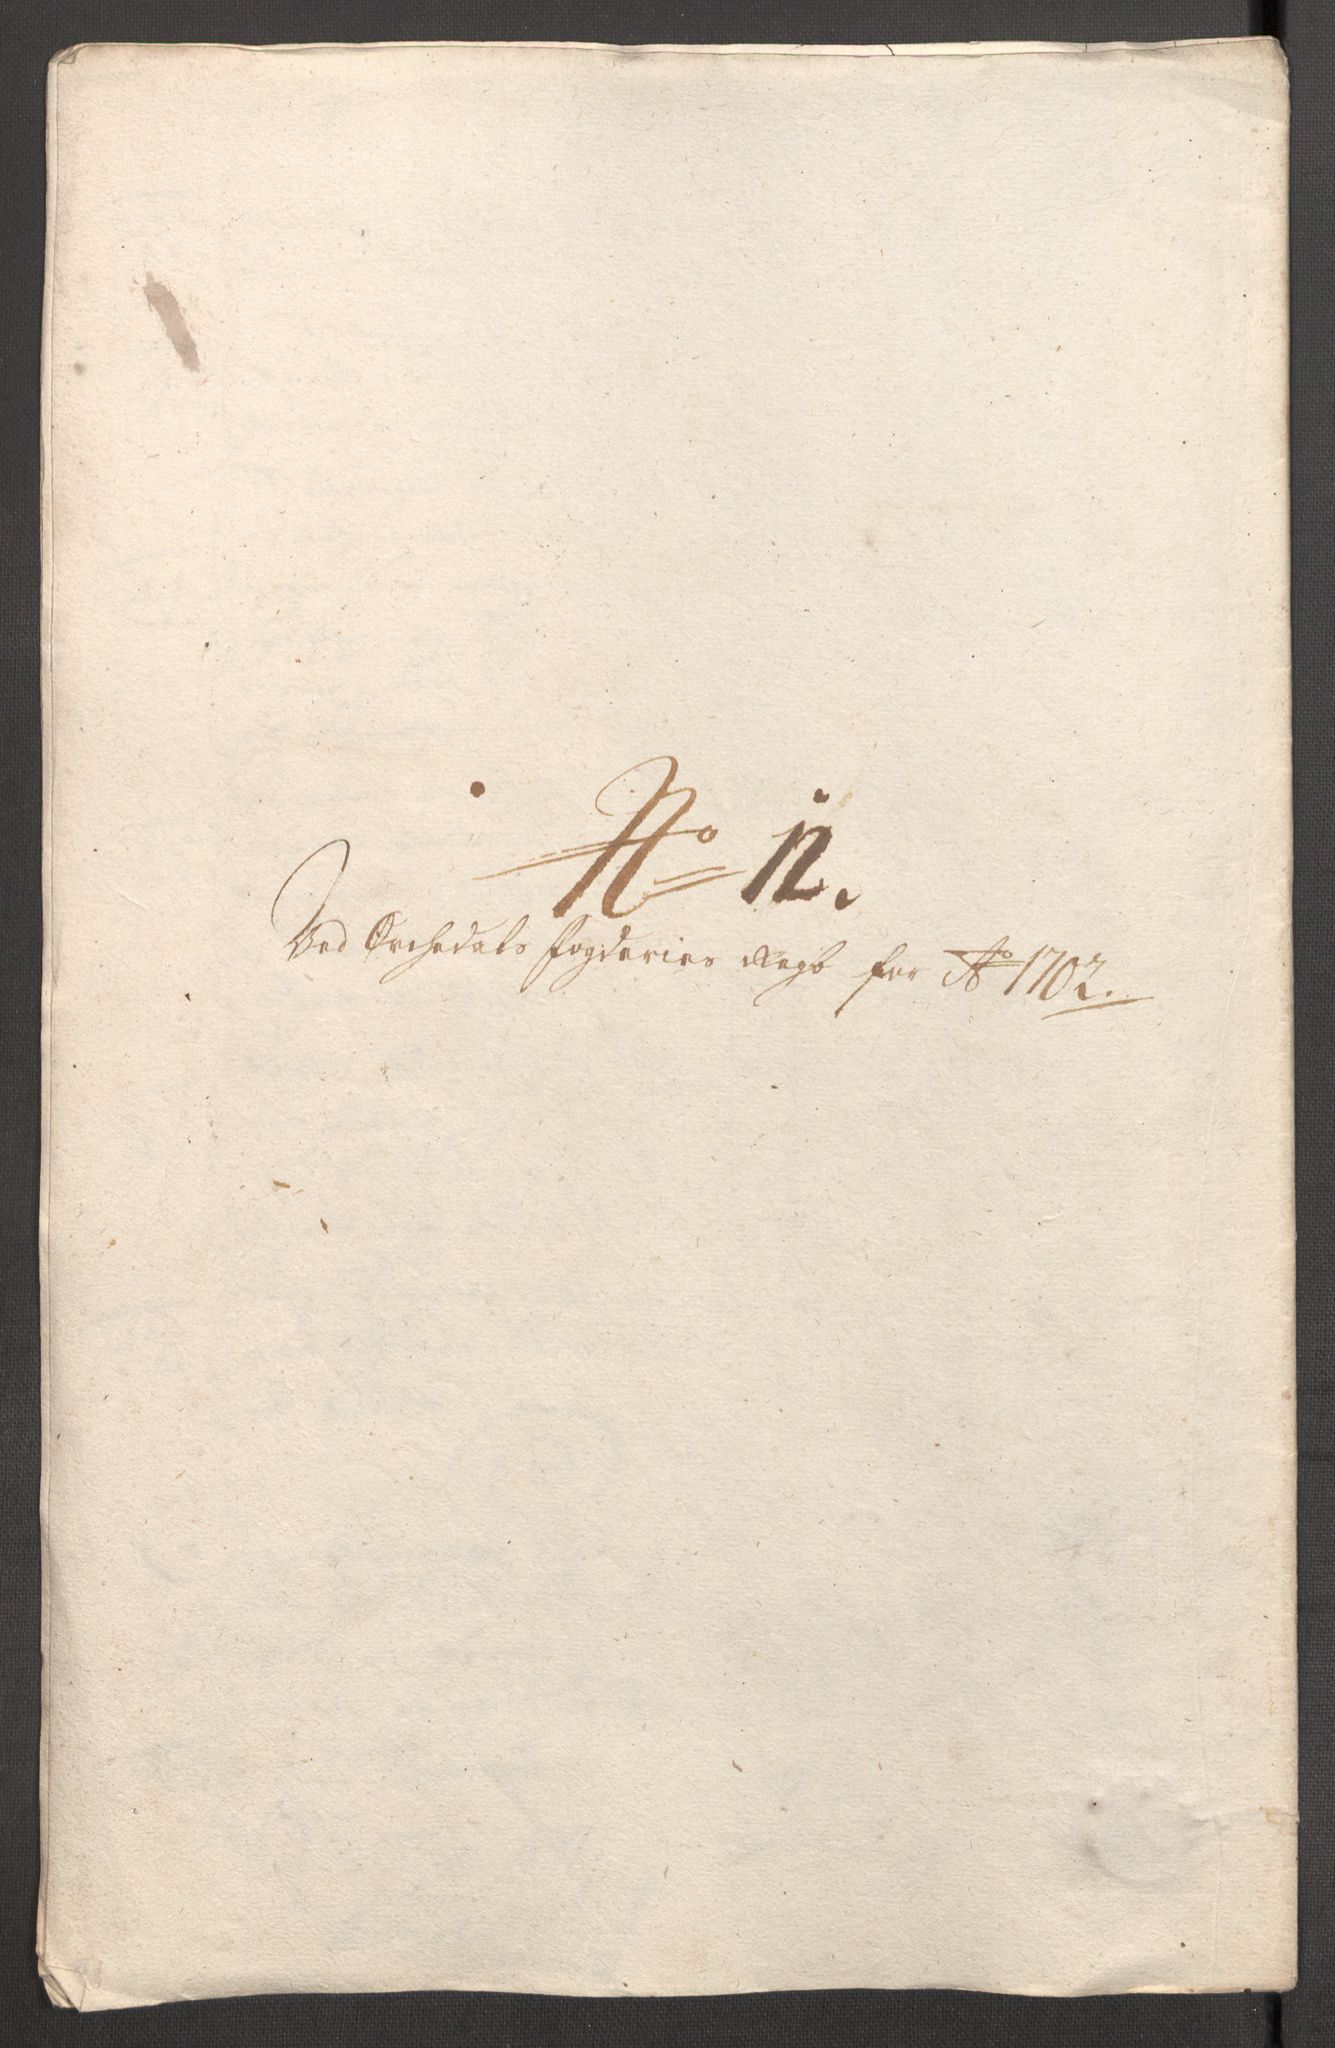 No 12.
Ved Orchedals fogderies Regb for Ao 1702.